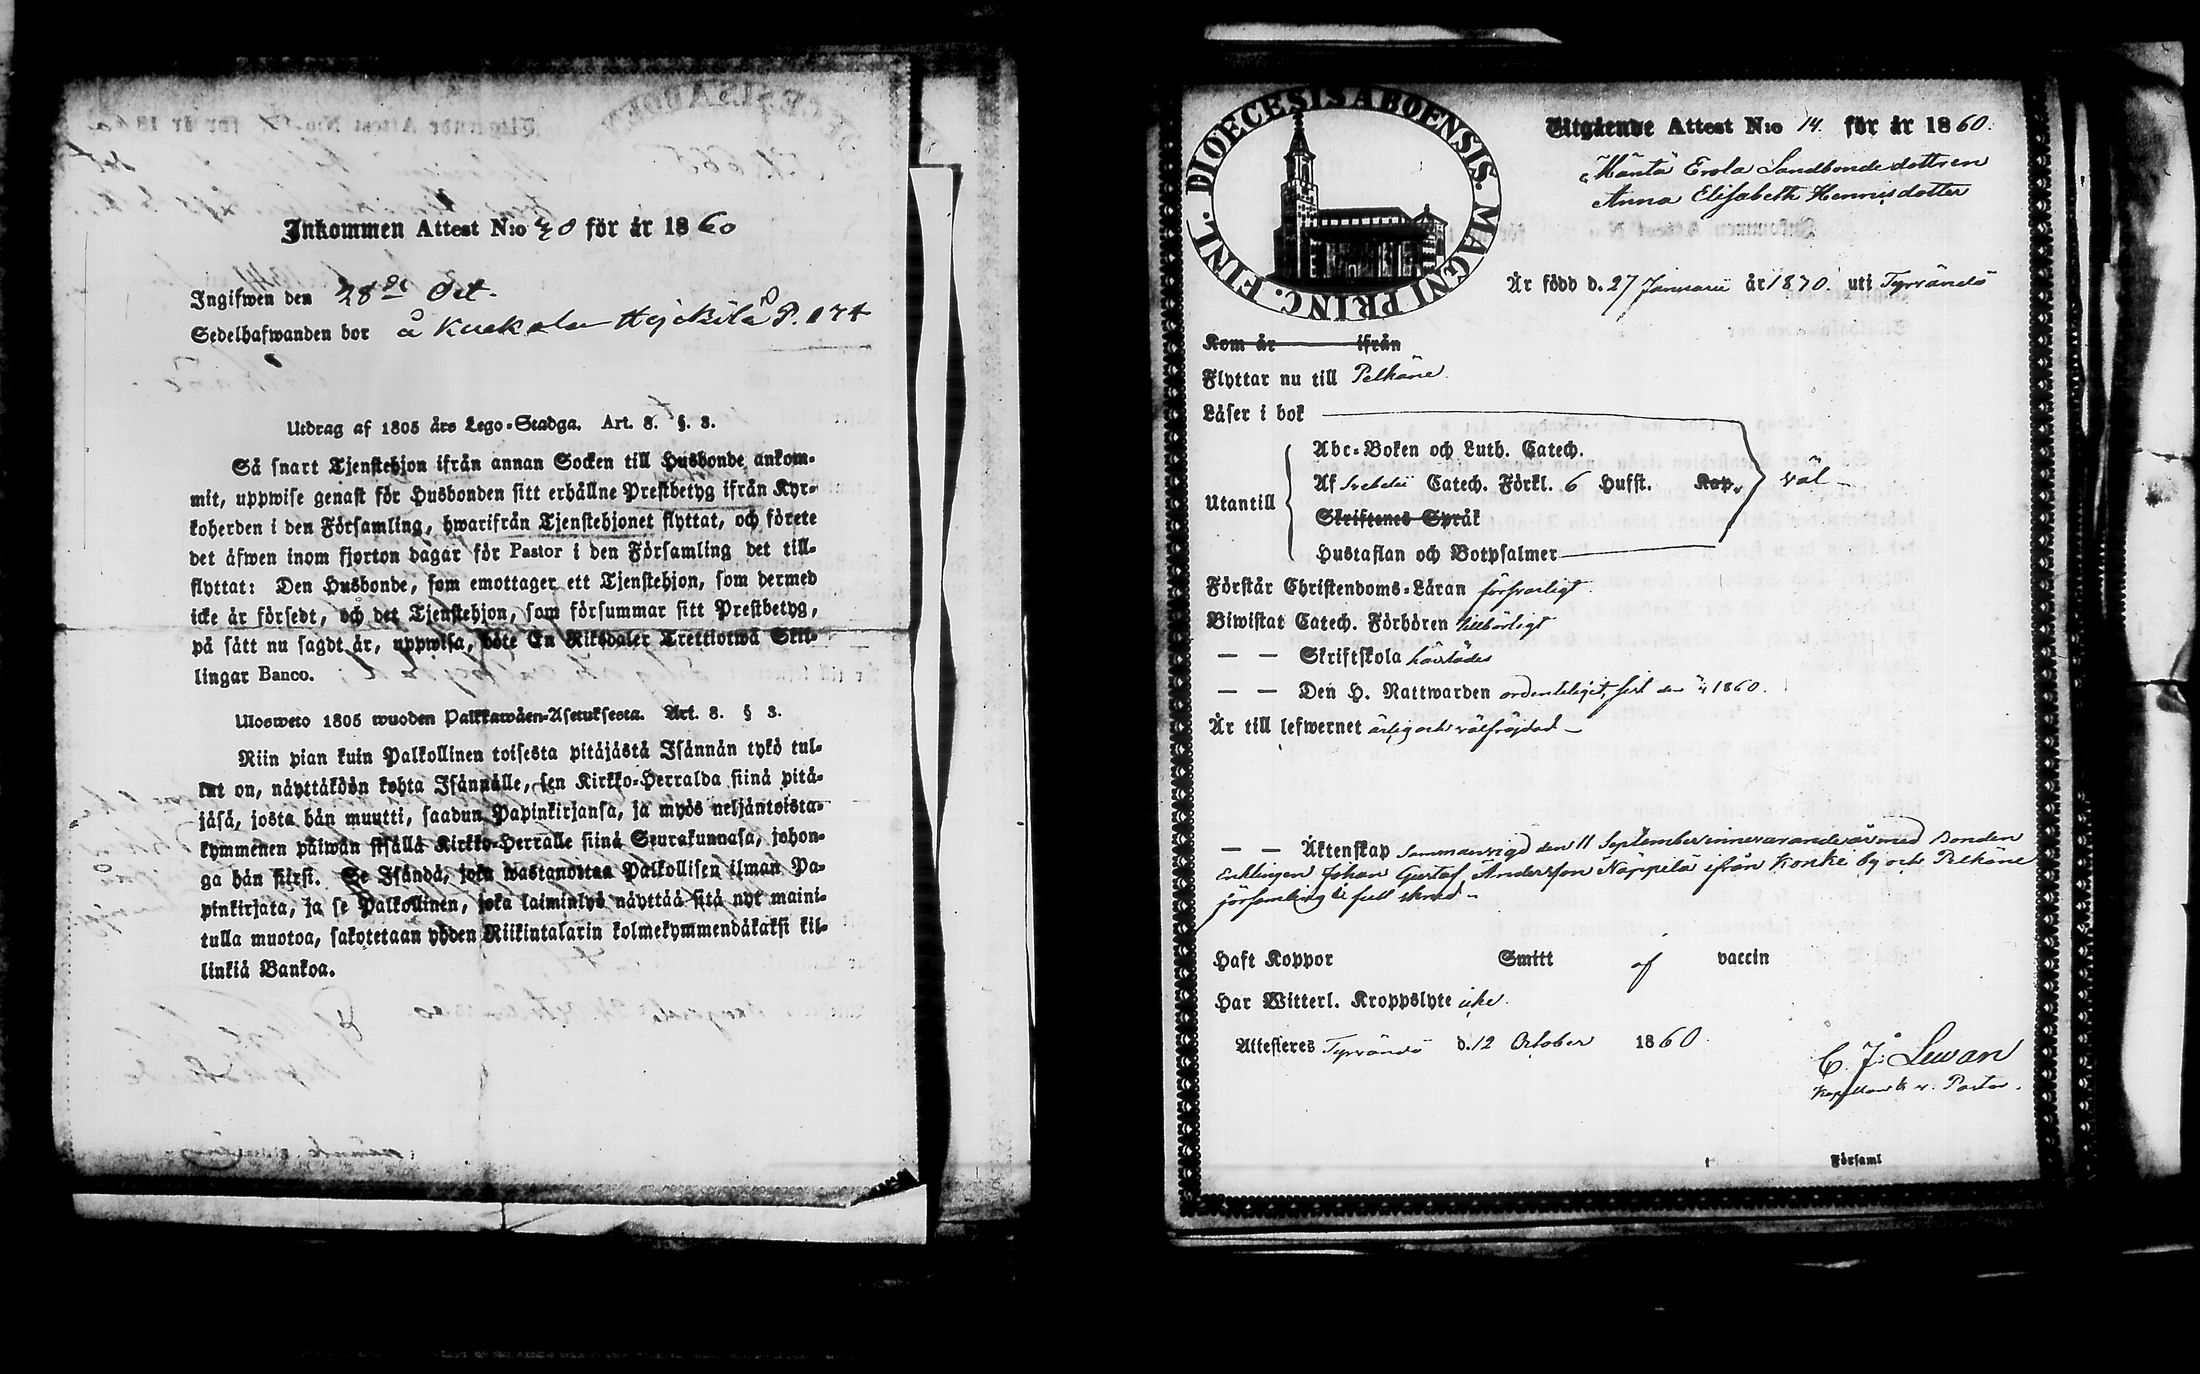 Inkommen Attest N:o 40 för år 1860
Ingifwen den 28de Oct.
Sedelhafwanden bor å Kuckola Heickilä P. 174
Utdrag af 1805 års Lego-Stadga. Art. 8. §. 3.
Så snart Tjenstehjon ifrån annan Socken till Husbonde ankom-
mit, uppwise genast för Husbonden sitt erhållne Prestbetyg ifrån Kyr-
koherden i den Församling, hwarifrån Tjenstehjonet flyttat, och förete
det äfwen inom fjorton dagar för Pastor i den Församling det till-
flyttat: Den Husbonde, som emottager ett Tjenstehjon, som dermed
icke är försedt, och det Tjenstehjon, som försummar sitt Prestbetyg,
på sätt nu sagdt är, uppwisa, böte En Riksdaler Trettiotwå Skil-
lingar Banco.
Ulosweto 1805 wuoden Palkkawäen-Asetuksesta. Art. 8. § 3.
Niin pian kuin Palkollinen toisesta pitäjästä Isännän tykö tul-
lut on, näyttäköön kohta Isännälle, sen Kirkko-Herralda siinä pitä-
jäsä, josta hän muutti, saadun Papinkirjansa, ja myös neljäntoista-
kymmenen päiwän sisällä Kirkko-Herralle siinä Seurakunnasa, johon-
ga hän siirsi. Se Isändä, joka wastanottaa Palkollisen ilman Pa-
pinkirjata, ja se Palkollinen, joka laiminlyö näyttää sitä nyt maini-
tulla muotoa, sakotetaan yhden Riikintalarin kolmekymmendäkaksi kil-
linkiä Bankoa.
DIOECESIS ABOENSIS. MAGNI PRINC. FINL.
Utgående Attest N:o 14. för år 1860.
Mäntä Erola Landbonde dottren
Anna Elisabeth Henricsdotter
Är född d. 27 Januarii år 1870. uti Tyrvändö
Kom år ifrån
Flyttar nu till Pelkäne
Läser i bok
Abc-Boken och Luth. Catech.
Utantill Af Svebelii Catech. Förkl. 6 Hufst. Kap. väl
Skriftenes Språk
Hustaflan och Botpsalmer
Förstår Christendoms-Läran försvarligt
Biwistat Catech. Förhören tillbörligt
— — Skriftskola
— — Den H. Nattwarden ordenteligit, sist den 1860.
Är till lefwernet ärlig och välfräjdad
— — Äktenskap Sammanvigd den 11 September innevarande år med Bonden
Enklingen Johan Gustaf Andersson Näppilä ifrån Konke by och Pelkäne
församling
Haft Koppor Smitt af vaccin
Har Witterl. Kroppslyte icke.
Attesteres Tyrvändö d. 12 October 1860.
C. J. Lewan
Kapellan & v. Pastor.
Församl